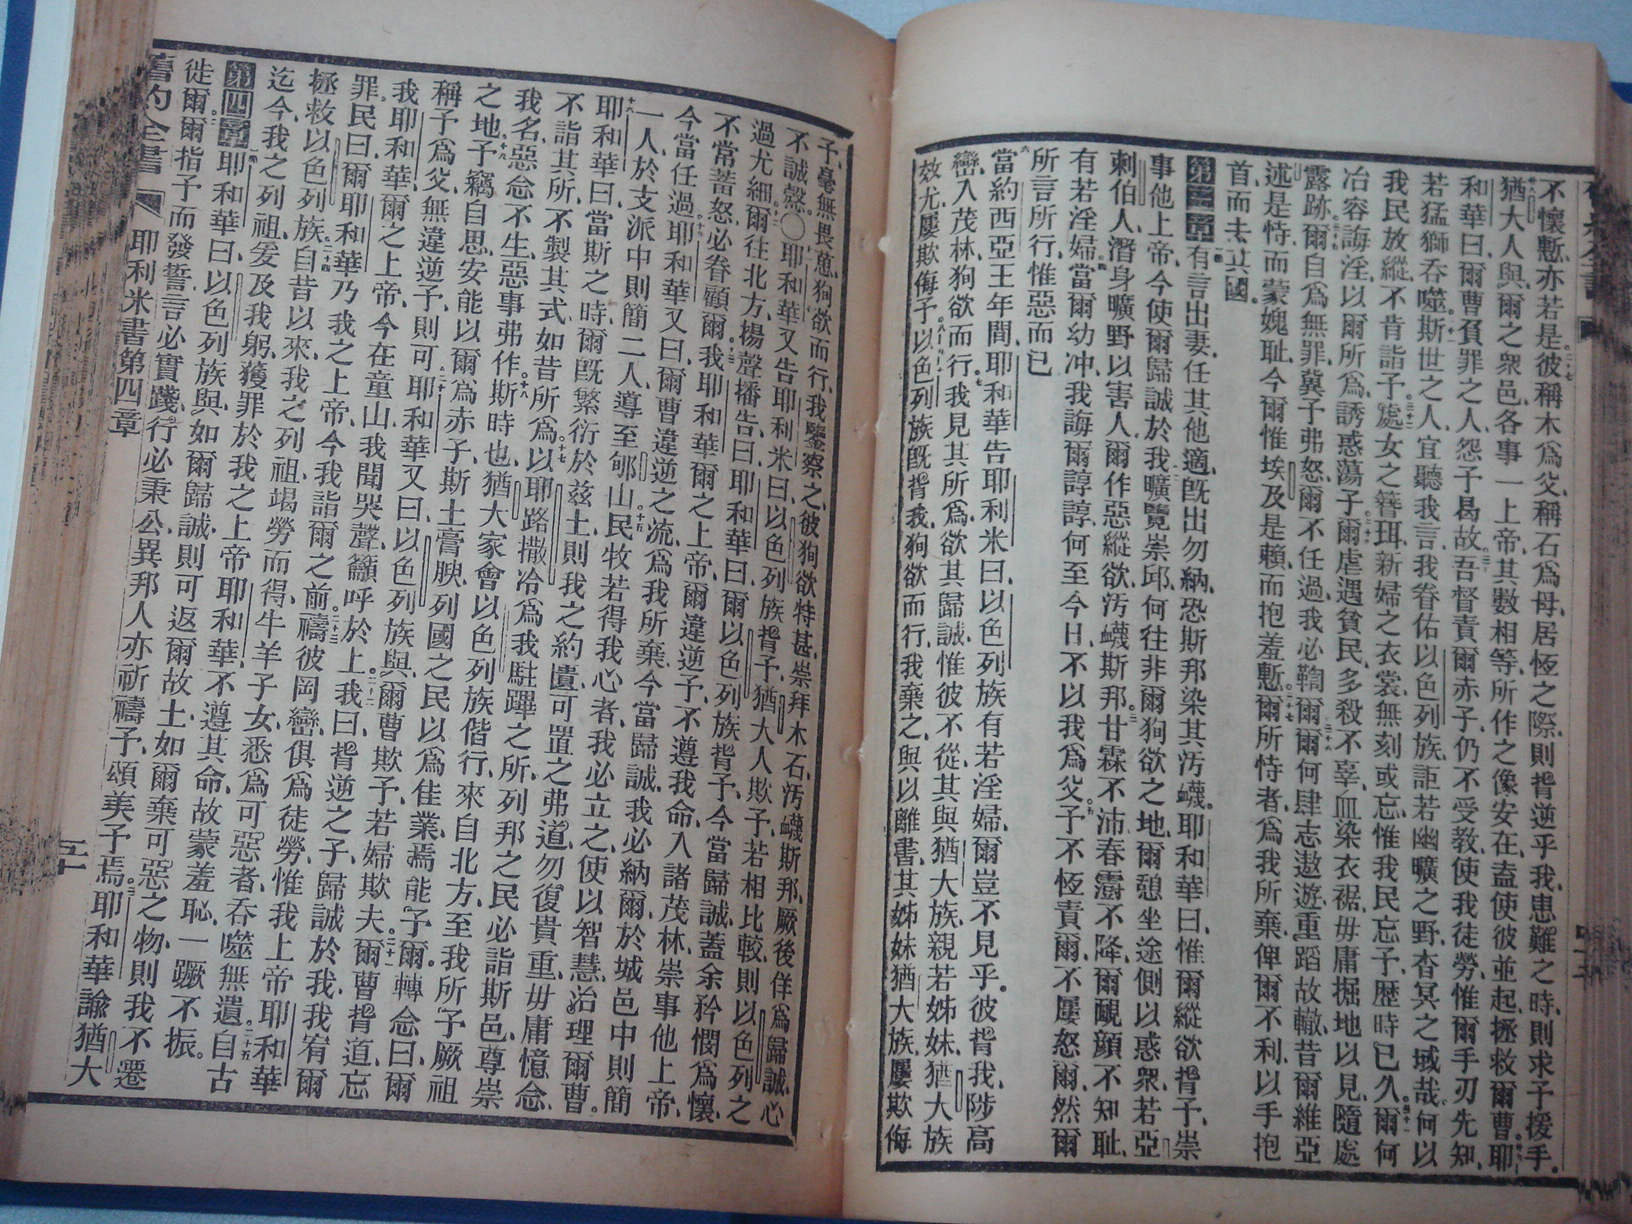 不懷慙、亦若是、彼稱木爲父、稱石爲母、居恆之際、則揹逆乎我、患難之時、則求予援手。
猶大人與爾之衆邑、各事一上帝、其數相等、所作之像安在、盍使彼並起、拯救爾曹、耶
和華曰、爾曹負罪之人、怨予曷故、吾督責爾赤子、仍不受教、使我徒勞、惟爾手刃先知、
若猛獅吞噬、斯世之人、宜聽我言、我眷佑以色列族、詎若幽曠之野、杳冥之域哉、何以
我民放縱、不肯詣予、處女之簪珥、新婦之衣裳、無刻或忘、惟我民忘予、歷時已久、爾何
冶容誨淫、以爾所爲、誘惑蕩子、爾虐遇貧民、多殺不辜、血染衣裾、毋庸掘地以見、隨處
露跡、爾自爲無罪、冀予弗怒、爾不任過、我必鞫爾、爾何肆志遨遊、重蹈故轍、昔爾維亞
述是恃、而蒙媿耻、今爾惟埃及是賴、而抱羞慙、爾所恃者、爲我所棄、俾爾不利、以手抱
首而去其國。
第三章 有言出妻、任其他適、旣出勿納、恐斯邦染其汚衊。耶和華曰、惟爾縱欲揹予、崇
事他上帝、今使爾歸誠於我、曠覽崇邱、何往非爾狥欲之地、爾憩坐途側、以惑衆、若亞
刺伯人、潛身曠野以害人、爾作惡縱欲、汚衊斯邦、甘霖不沛、春澍不降、爾靦顏不知耻、
有若淫婦、當爾幼冲、我誨爾諄諄、何至今日、不以我爲父、予不恆責爾、不屢怒爾、然爾
所言所行、惟惡而已、
當約西亞王年間、耶和華告耶利米曰、以色列族有若淫婦、爾豈不見乎。彼揹我、陟高
巒、入茂林、狥欲而行、我見其所爲、欲其歸誠、惟彼不從、其與猶大族、親若姊妹、猶大族
效尤、屢欺侮予。以色列族旣揹我、狥欲而行、我棄之、與以離書、其姊妹猶大族、屢欺侮
予、毫無畏葸、狥欲而行、我鑒察之、彼狥欲特甚、崇拜木石、汚衊斯邦、厥後佯爲歸誠、心
不誠慤。○耶和華又告耶利米曰、以色列族揹予、猶大人欺予、若相比較、則以色列之
過尤細、爾往北方、揚聲播告曰、耶和華曰、爾以色列族揹予、今當歸誠、蓋余矜憫爲懷、
不常蓄怒、必眷顧爾、我耶和華爾之上帝、爾違逆予、不遵我命、入諸茂林、崇事他上帝、
今當任過、耶和華又曰、爾曹違逆之流、爲我所棄、今當歸誠、我必納爾、於城邑中、則簡
一人、於支派中、則簡二人、導至郇山、民牧若得我心者、我必立之、使以智慧、治理爾曹。
耶和華曰、當斯之時、爾旣繁衍於茲土、則我之約匱、可置之弗道、勿復貴重、毋庸憶念、
不詣其所、不製其式、如昔所爲、以耶路撒冷爲我駐蹕之所、列邦之民、必詣斯邑、尊崇
我名、惡念不生、惡事弗作、斯時也、猶大家會以色列族偕行、來自北方、至我所予厥祖
之地、予竊自思、安能以爾爲赤子、斯土膏腴、列國之民、以爲佳業、焉能予爾、轉念曰、爾
稱予爲父、無違逆予、則可、耶和華又曰、以色列族與、爾曹欺予、若婦欺夫、爾曹揹道、忘
我耶和華爾之上帝、今在童山、我聞哭聲、籲呼於上、我曰、揹逆之子、歸誠於我、我宥爾
罪、民曰、爾耶和華乃我之上帝、今我詣爾之前、禱彼岡巒、俱爲徒勞、惟我上帝耶和華
拯救以色列族、自昔以來、我之列祖、竭勞而得、牛羊子女、悉爲可惡者、吞噬無遺、自古
迄今、我之列祖、爰及我躬、獲罪於我之上帝耶和華、不遵其命、故蒙羞恥、一蹶不振。
第四章 耶和華曰、以色列族與、如爾歸誠、則可返爾故土、如爾棄可惡之物、則我不遷
徙爾。爾指予而發誓、言必實踐、行必秉公、異邦人亦祈禱予、頌美予焉、耶和華諭猶大
舊約全書 耶利米書第四章